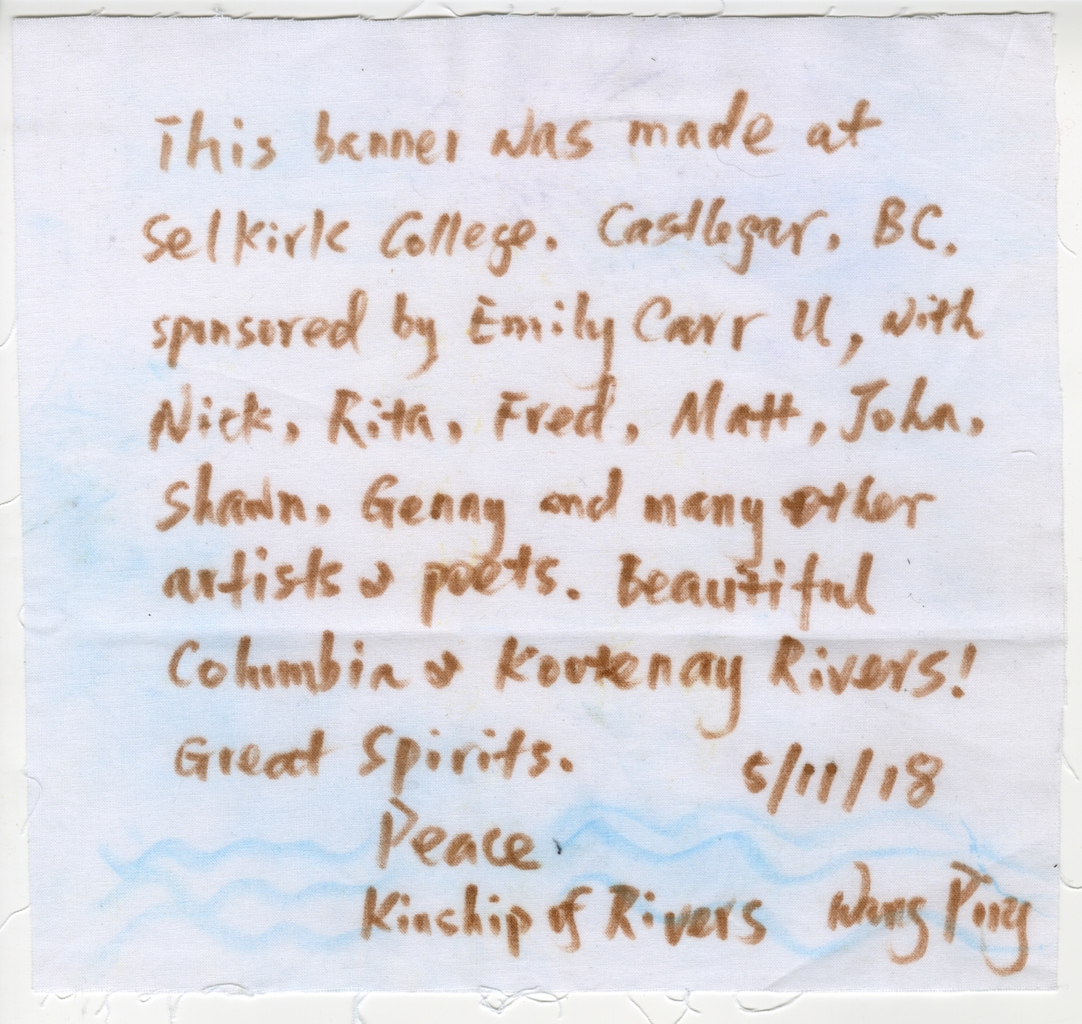 This banner was made at
Selkirk College. Castlegar, BC.
sponsored by Emily Carr U, with
Nick, Rita, Fred, Matt, John,
Shawn, Genny and many other
artists & poets. Beautiful
Columbia & Kootenay Rivers!
Great Spirits. 5/11/18
Peace
Kinship of Rivers Wang Ping